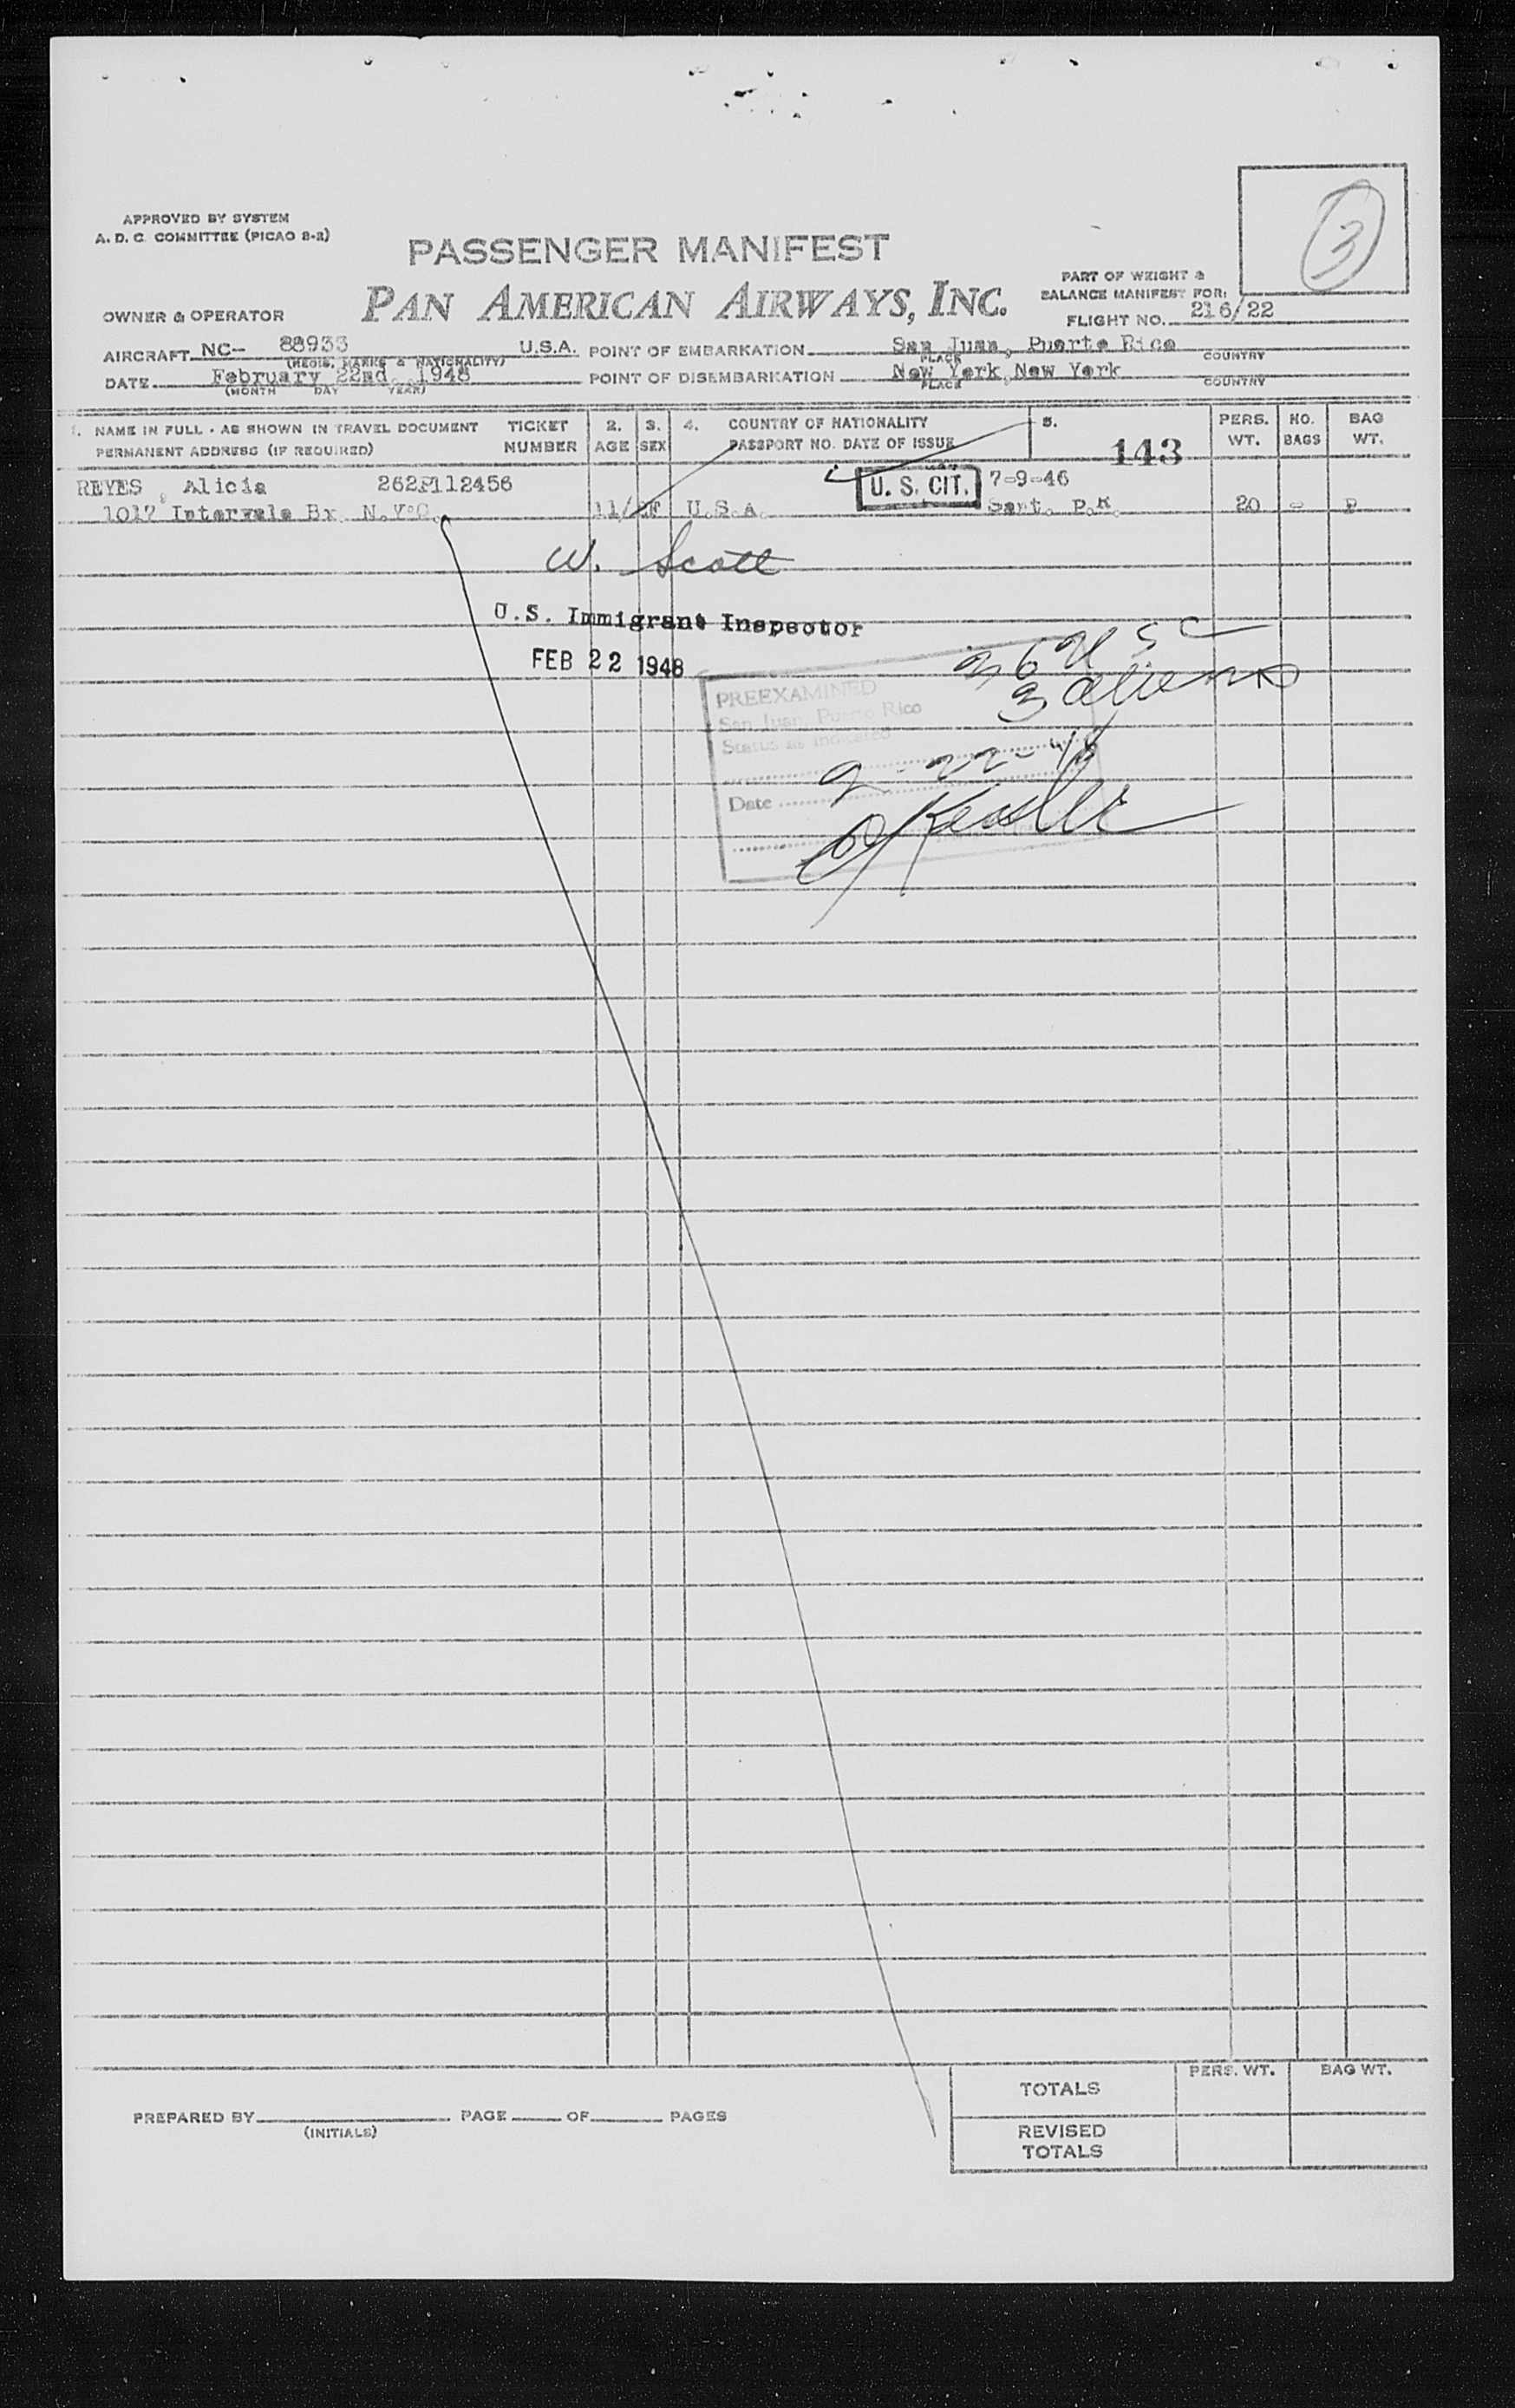 APPROVED BY SYSTEM
A. D. C. COMMITTEE (PICAO 8-2)
3
PASSENGER MANIFEST
PAN AMERICAN AIRWAYS, INC.
PART OF WEIGHT &
BALANCE MANIFEST FOR:
FLIGHT NO. 216/22
OWNER & OPERATOR
AIRCRAFT NC-- 88933 U.S.A. POINT OF EMBARKATION San Juan, Puerto Rico
(REGIS. MARKS & NATIONALITY) PLACE COUNTRY
DATE February 22nd, 1948 POINT OF DISEMBARKATION New York, New York
(MONTH DAY YEAR) PLACE COUNTRY
1. NAME IN FULL - AS SHOWN IN TRAVEL DOCUMENT TICKET 2. 3. 4. COUNTRY OF NATIONALITY 5. PERS. NO. BAG
PERMANENT ADDRESS (IF REQUIRED) NUMBER AGE SEX PASSPORT NO. DATE OF ISSUE 143 WT. BAGS WT.
REYES, Alicia 262P112456 U. S. CIT. 7-9-46
1017 Intervale Bx. N.Y.C. F U.S.A. Sant. P.R. 20 - P
W. Scott
U.S. Immigrant Inspector
FEB 22 1948
36 U S C
3 aliens
PREEXAMINED
San Juan, Puerto Rico
Status as indicated
Date 2-22-48
PERS. WT. BAG WT.
TOTALS
PREPARED BY PAGE OF PAGES
(INITIALS)
REVISED
TOTALS